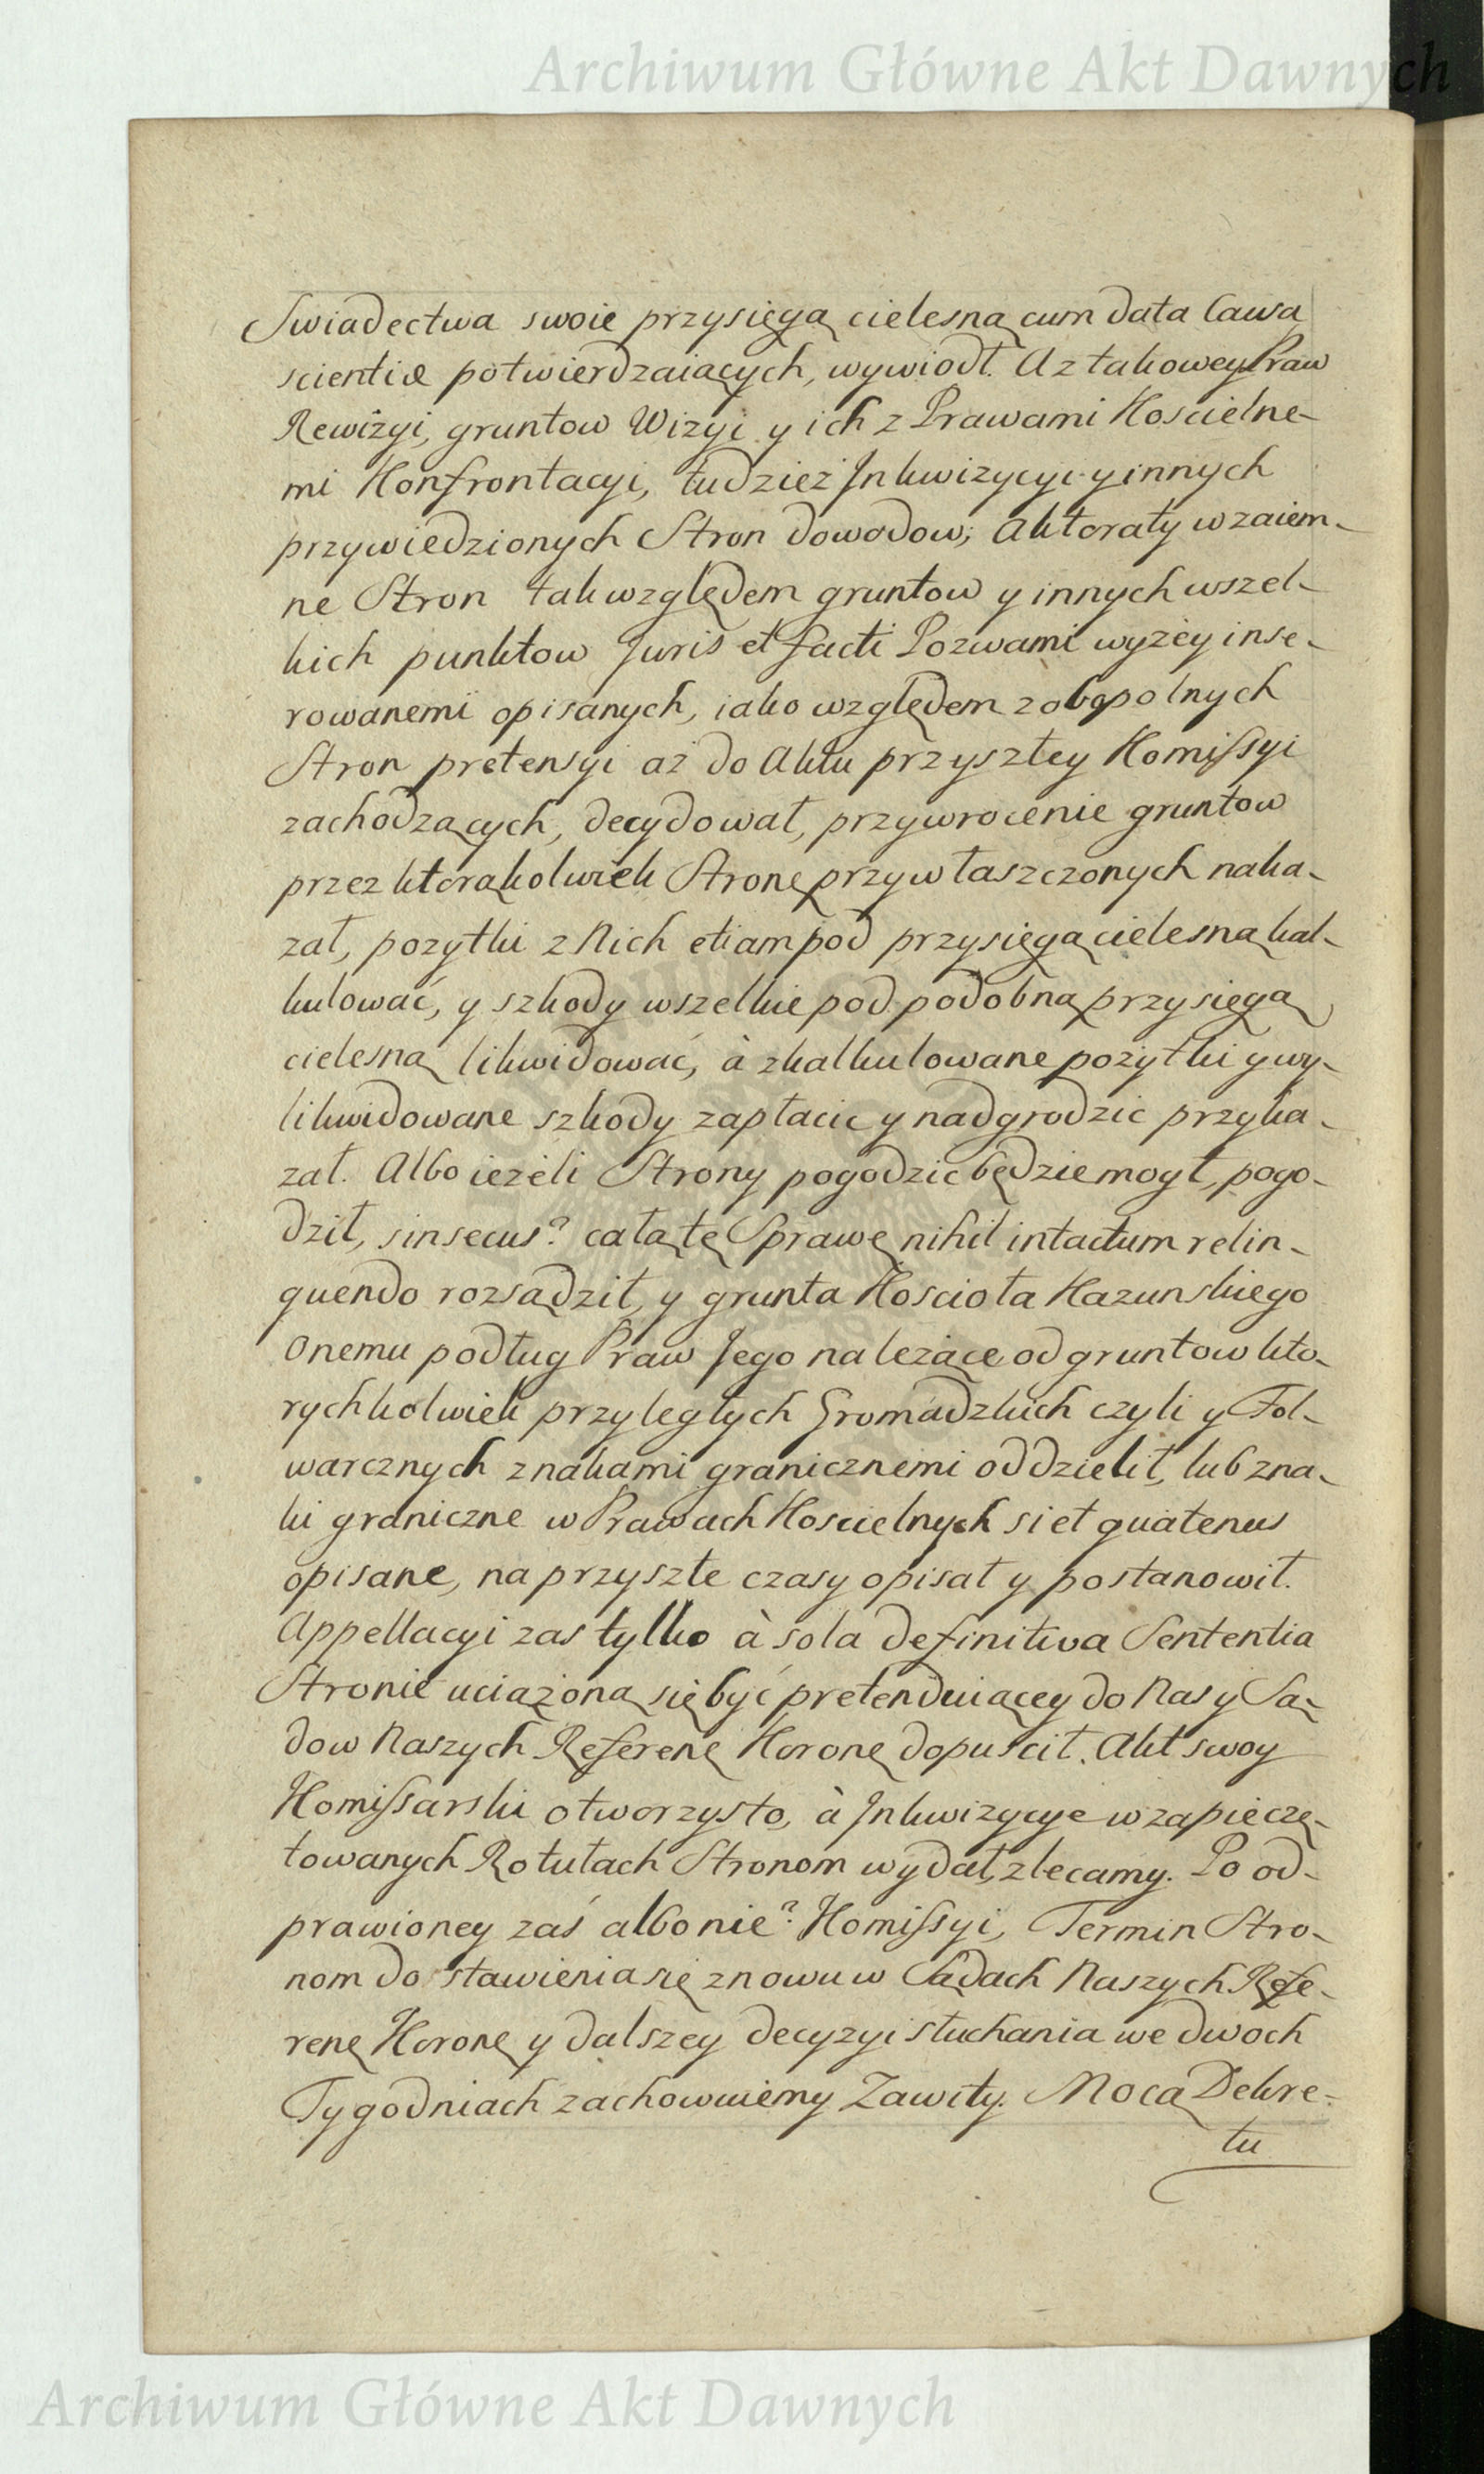 Archiwum Główne Akt Dawnych
Swiadectwa swoie przysięgą cielesną cum data Causa
scientiæ potwierdzaiących, wywiodł. A z takowey Praw
Rewizyi, gruntow Wizyi y ich z Prawami Koscielne-
mi Konfrontacyi, tudziez Inkwizycyi y innych
przywiedzionych Stron dowodow; Aktoraty wzaiem-
ne Stron tak względem gruntow y innych wszel-
kich punktow Juris et facti Pozwami wyżey inse-
rowanemi opisanych, iako względem zobopolnych
Stron pretensyi aż do Aktu przyszłey Komissyi
zachodzących, decydował, przywrocenie gruntow
przez ktorąkolwiek Stronę przywłaszczonych naka-
zał, pozytki z Nich etiam pod przysięgą cielesną kal-
kulować, y szkody wszelkie pod podobną przysięgą
cielesną likwidować, à zkalkulowane pożytki y wy-
likwidowane szkody zapłacic y nadgrodzic przyka-
zał. Albo ieżeli Strony pogodzic będzie mogł, pogo-
dził, sin secus? całą tę Sprawę nihil intactum relin-
quendo rozsądził, y grunta Kościoła Kazunskiego
Onemu podług Praw Jego należące od gruntow kto-
rychkolwiek przyległych Gromadzkich czyli y Fol-
warcznych znakami granicznemi oddzielił, lub zna-
ki graniczne w Prawach Koscielnych si et quatenus
opisane, na przyszłe czasy opisał y postanowił.
Appellacyi zas tylko à sola definitiva Sententia
Stronie uciążoną się być pretenduiącey do Nas y Są-
dow Naszych Referenę Koronę dopuscił. Akt swoy
Komissarski otworzysto, à Inkwizycye w zapieczę-
towanych Rotułach Stronom wydał, zlecamy. Po od-
prawioney zaś albo nie? Komissyi, Termin Stro-
nom do stawienia się znowu w Sądach Naszych Refe-
renę Koronę y dalszey decyzyi słuchania we dwoch
Tygodniach zachowuiemy Zawity. Mocą Dekre-
tu
Archiwum Główne Akt Dawnych